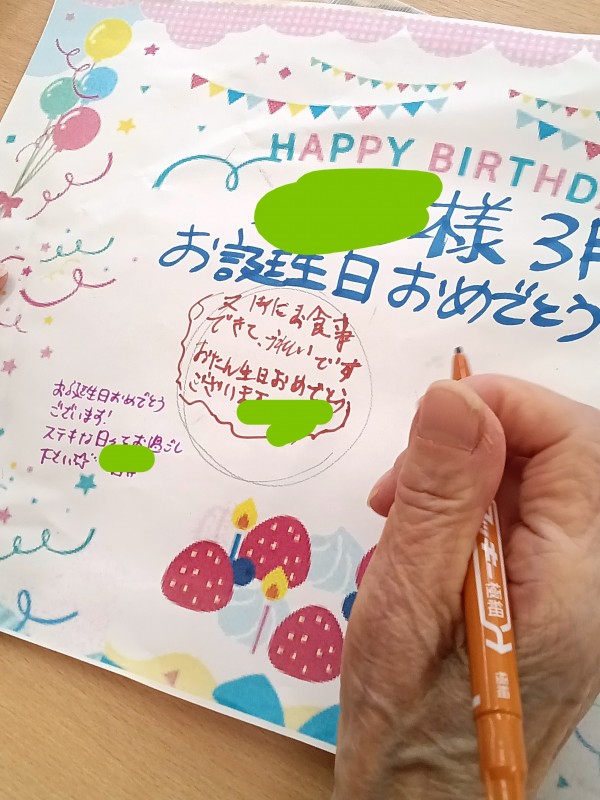 HAPPY BIRTHDA
様 3月
お誕生日おめでとう
又 一緒にお食事
できて、うれしいです
おたん生日おめでとう
ございます
お誕生日おめでとう
ございます!
ステキな日ってお過ごし
下さい☆
マッキー 極細
極細